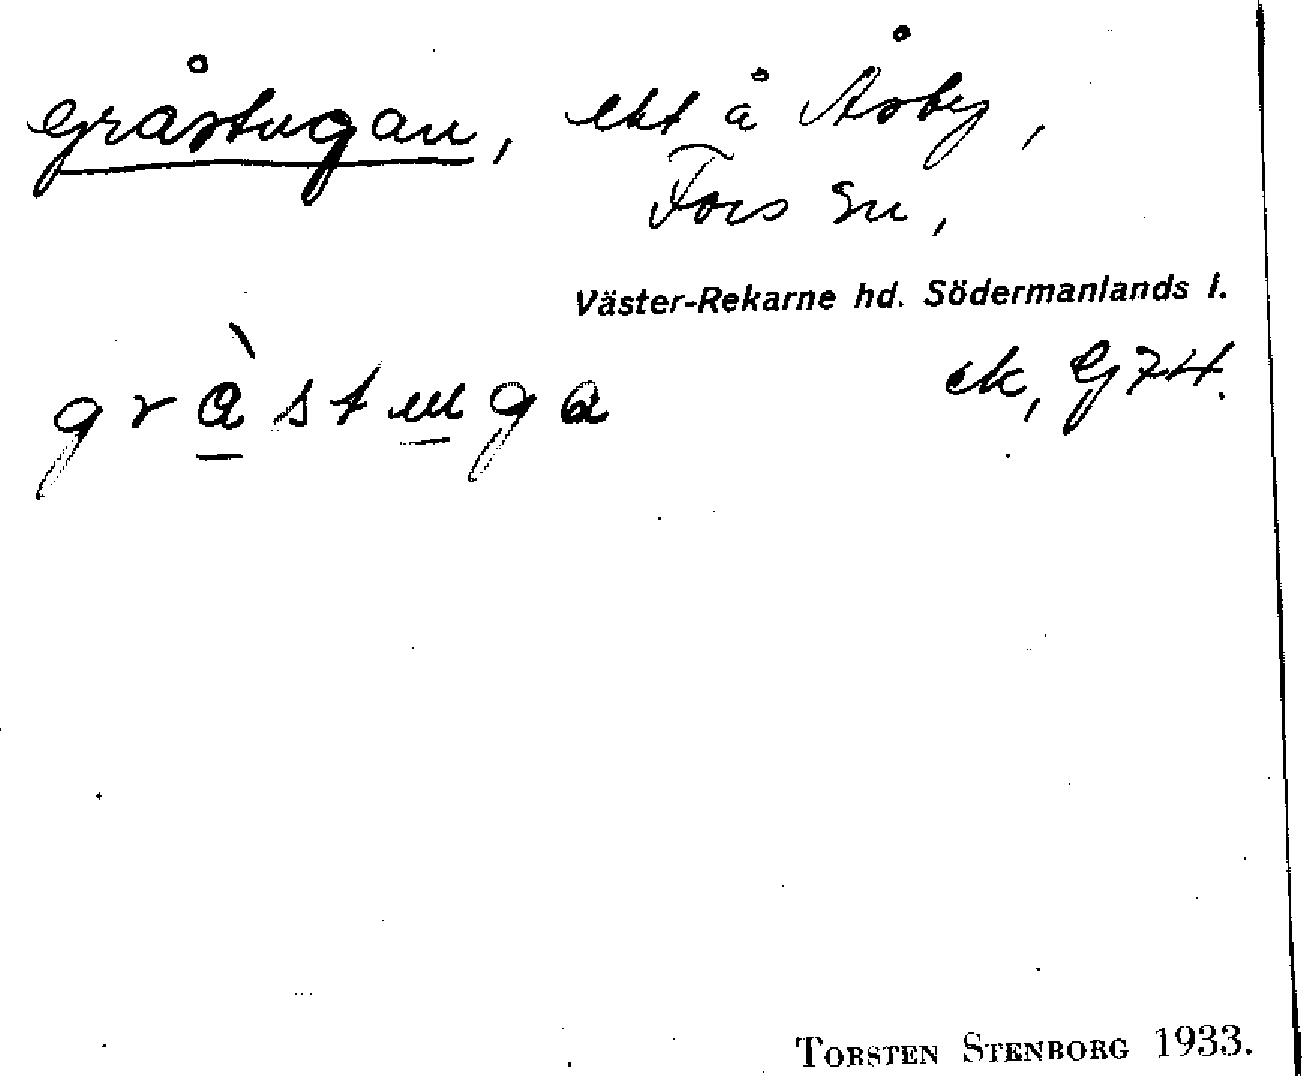 Gråstugan, lht å Åsby,
Fors sn,
Väster-Rekarne hd. Södermanlands l.
gràstuga
ek, G74.
TORSTEN STENBORG 1933.